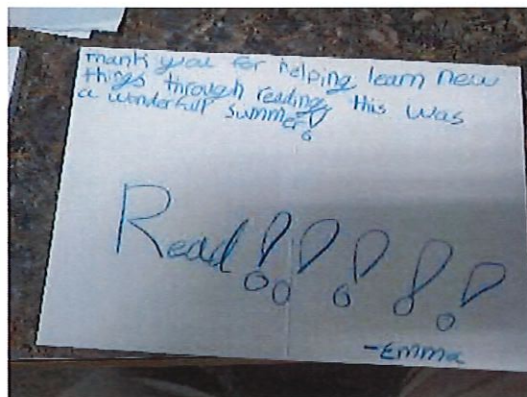 Thank you for helping learn new
things through reading, this was
a wonderfull summer!
Read!!!!!
-Emma